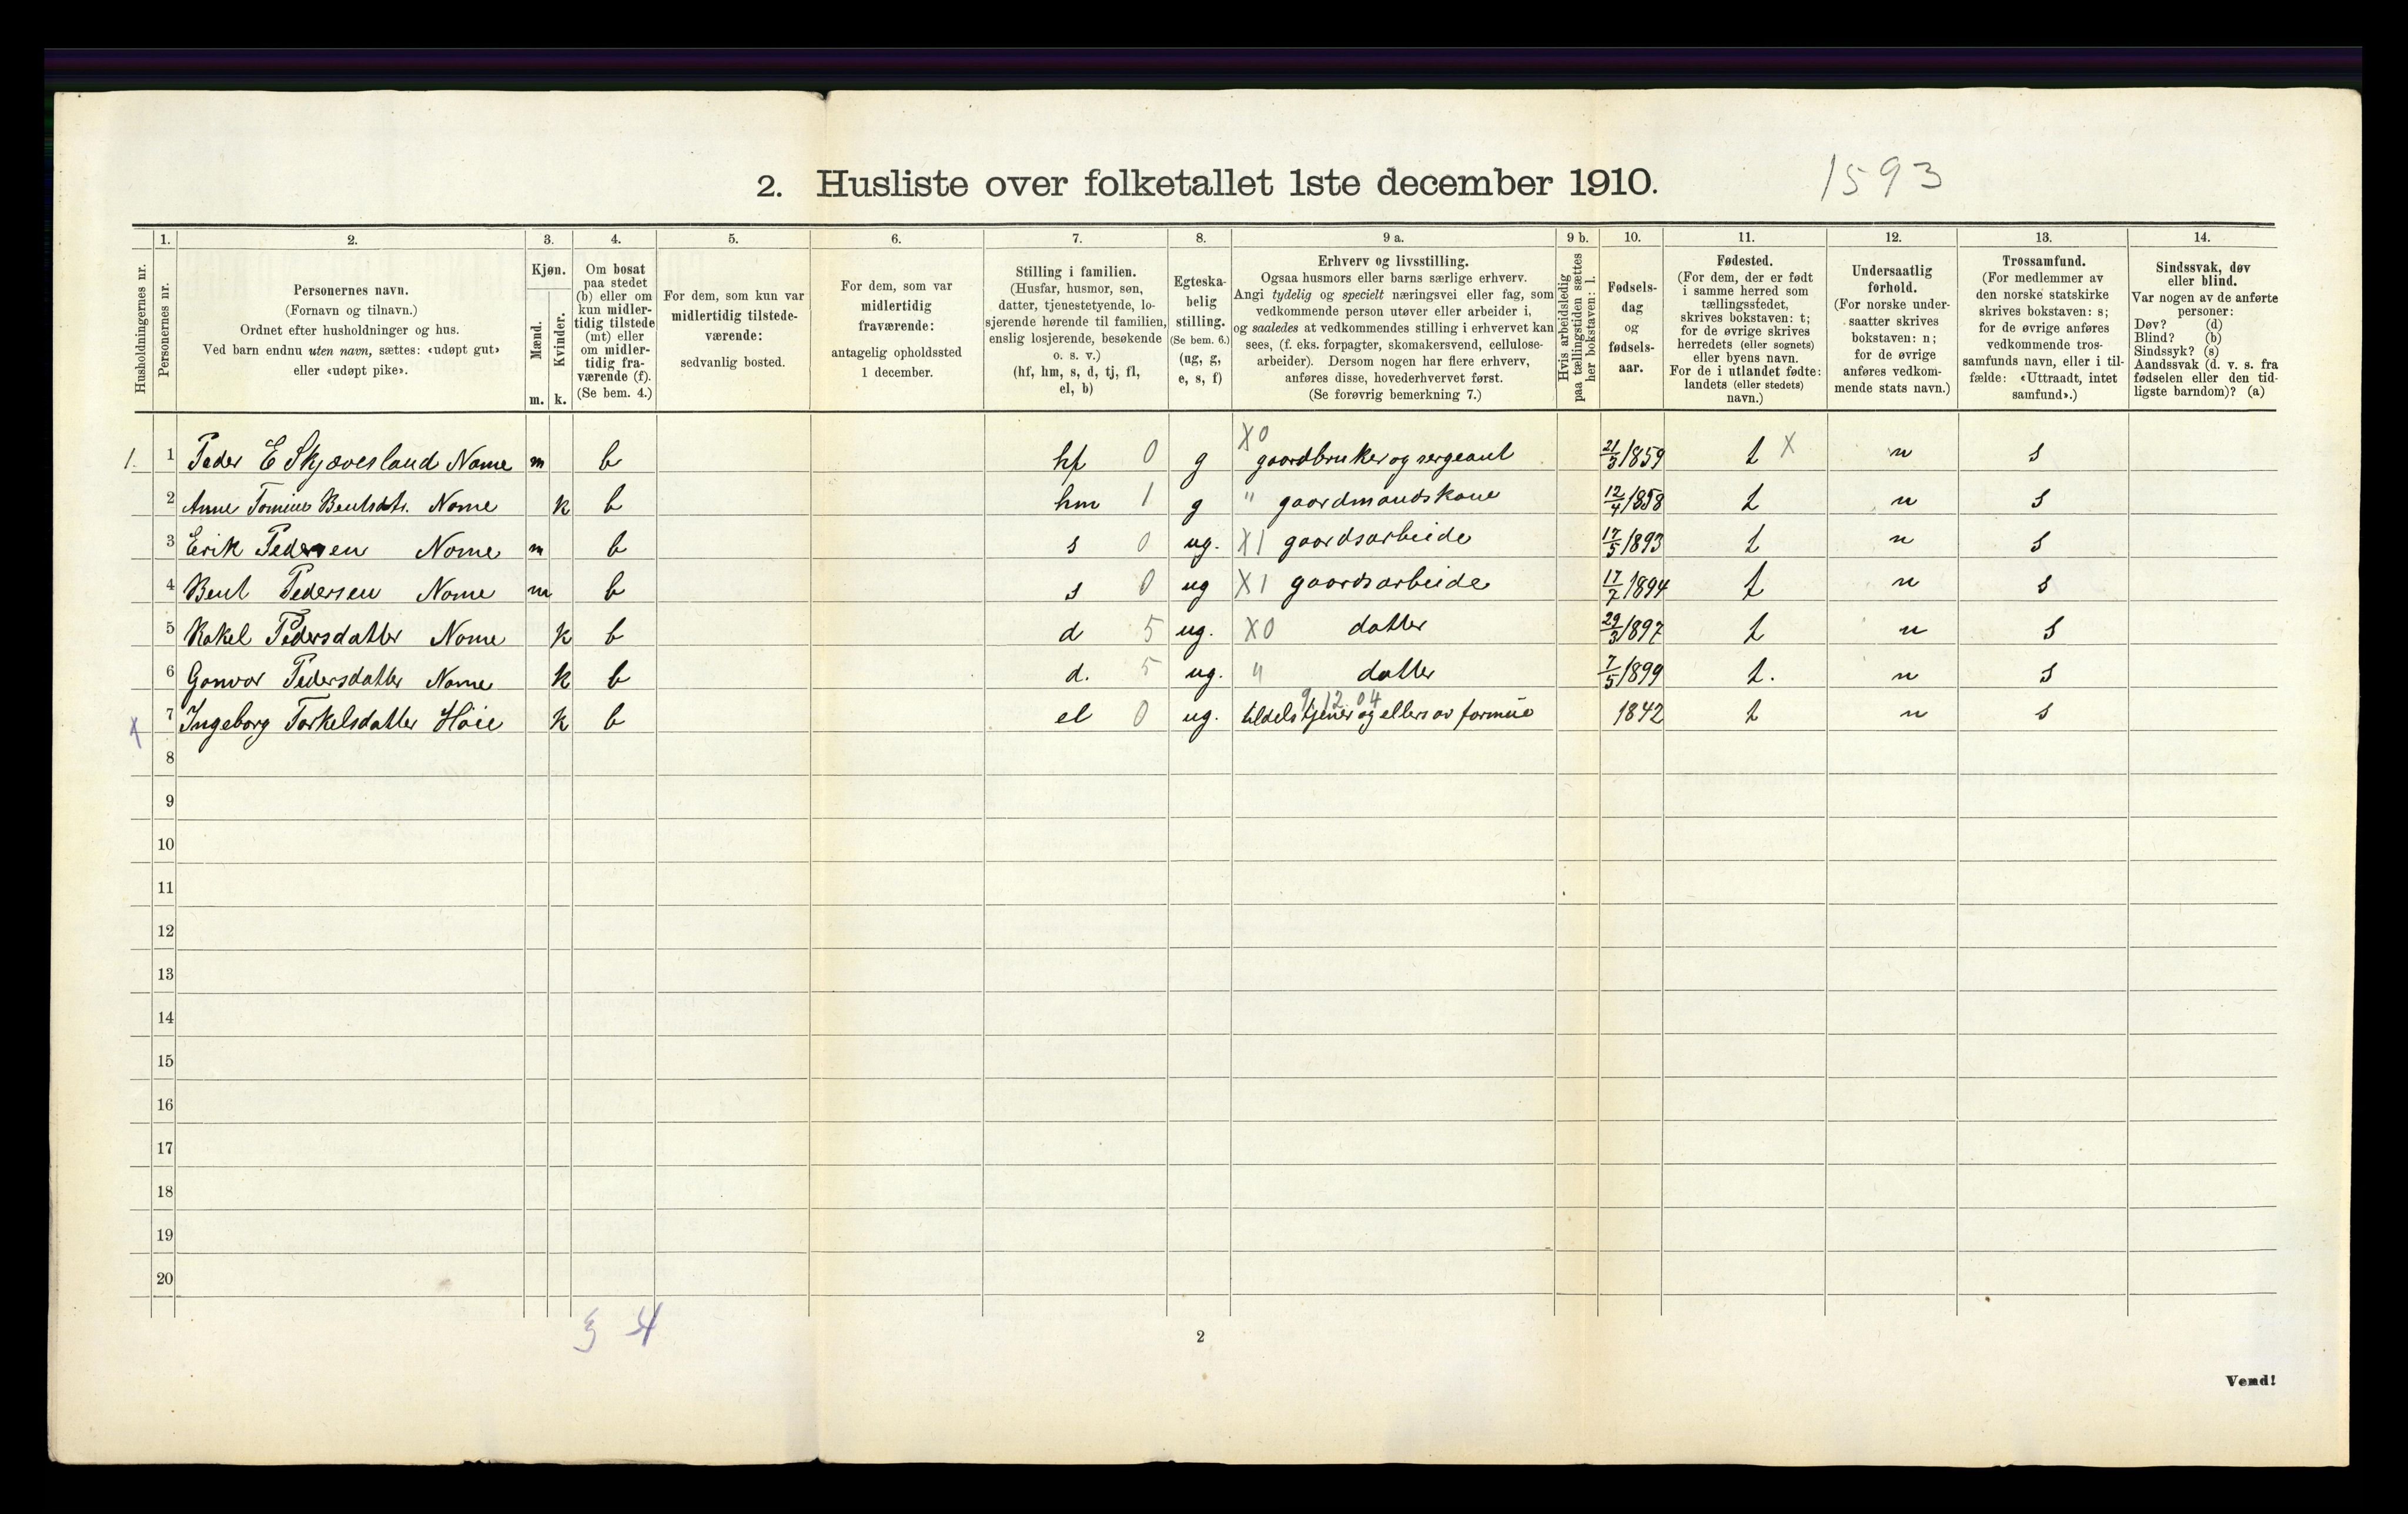 2. Husliste over folketallet 1ste december 1910. 1593
Husholdningernes nr.
1. Personernes nr.
2. Personernes navn.
(Fornavn og tilnavn.)
Ordnet efter husholdninger og hus.
Ved barn endnu uten navn, sættes: «udøpt gut»
eller «udøpt pike».
3. Kjøn.
Mænd. m.
Kvinder. k.
4. Om bosat
paa stedet
(b) eller om
kun midler-
tidig tilstede
(mt) eller
om midler-
tidig fra-
værende (f).
(Se bem. 4.)
5. For dem, som kun var
midlertidig tilstede-
værende:
sedvanlig bosted.
6. For dem, som var
midlertidig
fraværende:
antagelig opholdssted
1 december.
7. Stilling i familien.
(Husfar, husmor, søn,
datter, tjenestetyende, lo-
sjerende hørende til familien,
enslig losjerende, besøkende
o. s. v.)
(hf, hm, s, d, tj, fl,
el, b)
8. Egteska-
belig
stilling.
(Se bem. 6.)
(ug, g,
e, s, f)
9 a. Erhverv og livsstilling.
Ogsaa husmors eller barns særlige erhverv.
Angi tydelig og specielt næringsvei eller fag, som
vedkommende person utøver eller arbeider i,
og saaledes at vedkommendes stilling i erhvervet kan
sees, (f. eks. forpagter, skomakersvend, cellulose-
arbeider). Dersom nogen har flere erhverv,
anføres disse, hovederhvervet først.
(Se forøvrig bemerkning 7.)
9 b. Hvis arbeidsledig
paa tællingstiden sættes
her bokstaven: l.
10. Fødsels-
dag
og
fødsels-
aar.
11. Fødested.
(For dem, der er født
i samme herred som
tællingsstedet,
skrives bokstaven: t;
for de øvrige skrives
herredets (eller sognets)
eller byens navn.
For de i utlandet fødte:
landets (eller stedets)
navn.)
12. Undersaatlig
forhold.
(For norske under-
saatter skrives
bokstaven: n;
for de øvrige
anføres vedkom-
mende stats navn.)
13. Trossamfund.
(For medlemmer av
den norske statskirke
skrives bokstaven: s;
for de øvrige anføres
vedkommende tros-
samfunds navn, eller i til-
fælde: «Uttraadt, intet
samfund».)
14. Sindssvak, døv
eller blind.
Var nogen av de anførte
personer:
Døv? (d)
Blind? (b)
Sindssyk? (s)
Aandssvak (d. v. s. fra
fødselen eller den tid-
ligste barndom)? (a)
1. 1 Peder E Skjævesland Nome m b hf 0 g X0 gaardbruker og sergeant 21/3 1859 t X n s
2 Anne Tomine Bentsdtr. Nome k b hm 1 g " gaardmandskone 12/4 1858 t n s
3 Erik Pedersen Nome m b s 0 ug. X1 gaardsarbeide 17/5 1893 t n s
4 Bent Pedersen Nome m b s 0 ug X1 gaardsarbeide 17/7 1894 t n s
5 Rakel Pedersdatter Nome k b d 5 ug. X0 datter 29/3 1897 t n s
6 Gonvor Pedersdatter Nome k b d. 5 ug. " datter 7/5 1899 t. n s
X 7 Ingeborg Torkelsdatter Höie k b el 0 ug. 9,12 04 tildels tjener og ellers av formue 1842 t n s
8
9
10
11
12
13
14
15
16
17
18
19
20
3 4
2
Vend!